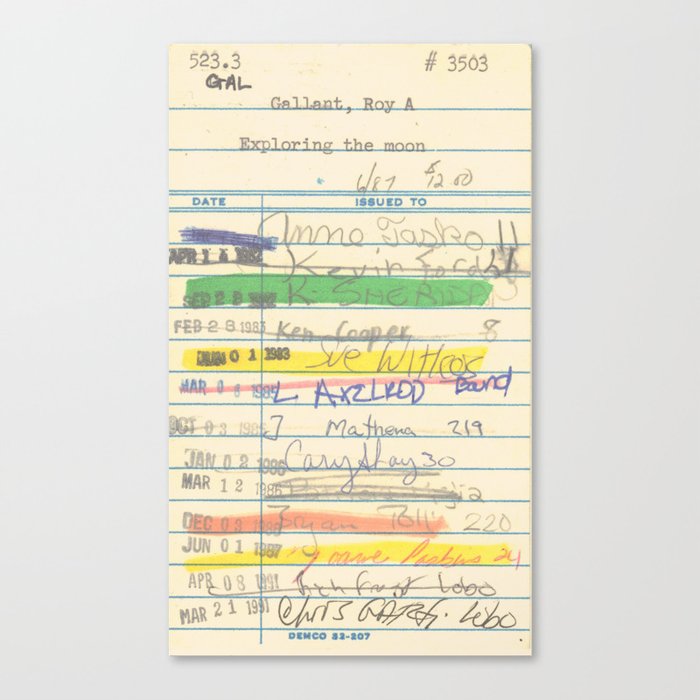 523.3 # 3503
GAL
Gallant, Roy A
Exploring the moon
6/87 $12.00
DATE ISSUED TO
Anne Tasko 11
APR 1 4 1982 Kevin Ford
SEP 2 8 1982 R SHERIDAN
FEB 2 8 1983 Ken Cooper 8
JUN 0 1 1983 Sue Witlcos
MAR 0 6 1985 L AXELROD Bound
OCT 0 3 1985 J Mathena 219
JAN 0 2 1986 Cary Shay 30
MAR 1 2 1986
DEC 0 3 1986 Bryan 220
JUN 0 1 1987 24
APR 0 8 1991 Lobo
MAR 2 1 1991 Chris Lobo
DEMCO 32-207